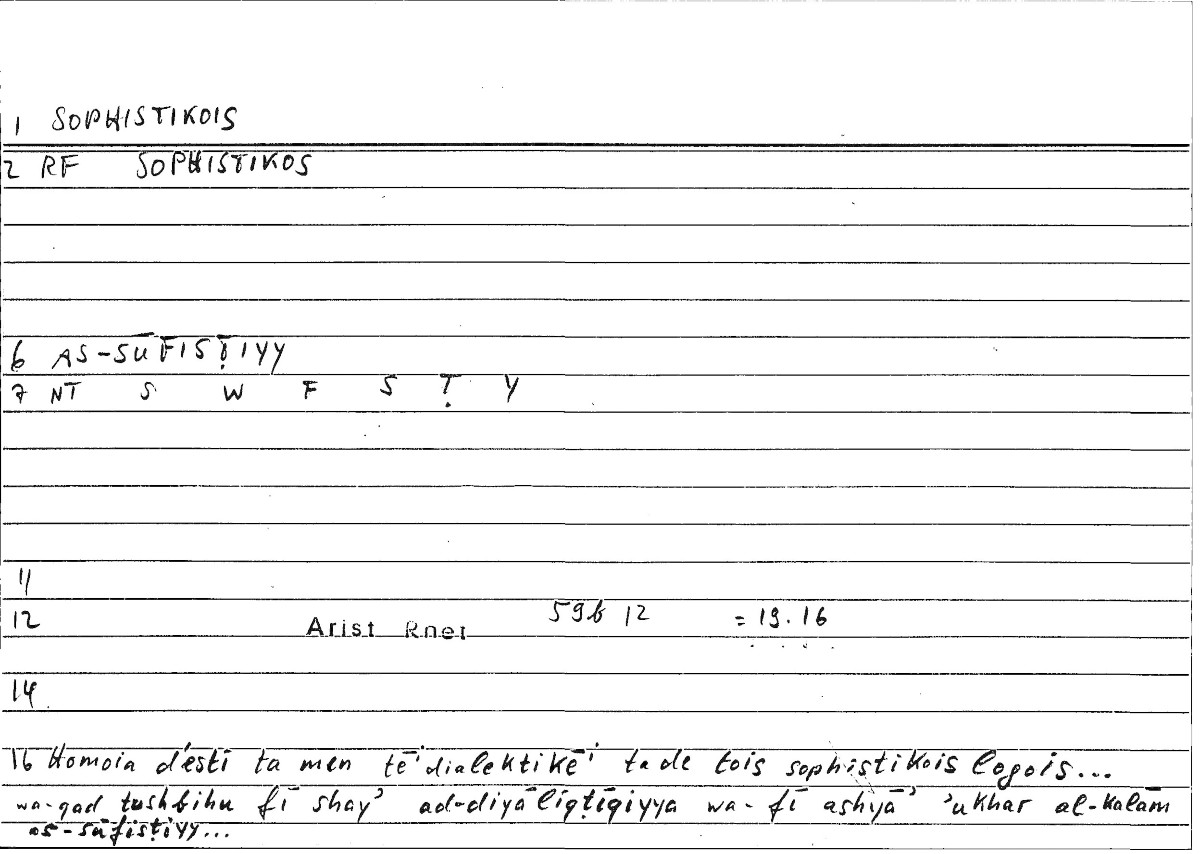 1 SOPHISTIKOIS
2 RF SOPHISTIKOS
6 AS-SŪFISṬIYY
7 NT S W F S Ṭ Y
11
12 Arist Rhet 59b 12 = 19.16
14
16 Homoia d'esti ta men tēi dialektikēi ta de tois sophistikois logois...
wa-qad tushbihu fī shay' ad-diyālīqṭīqiyya wa-fī ashyā' 'ukhar al-kalām
as-sūfisṭiyy...